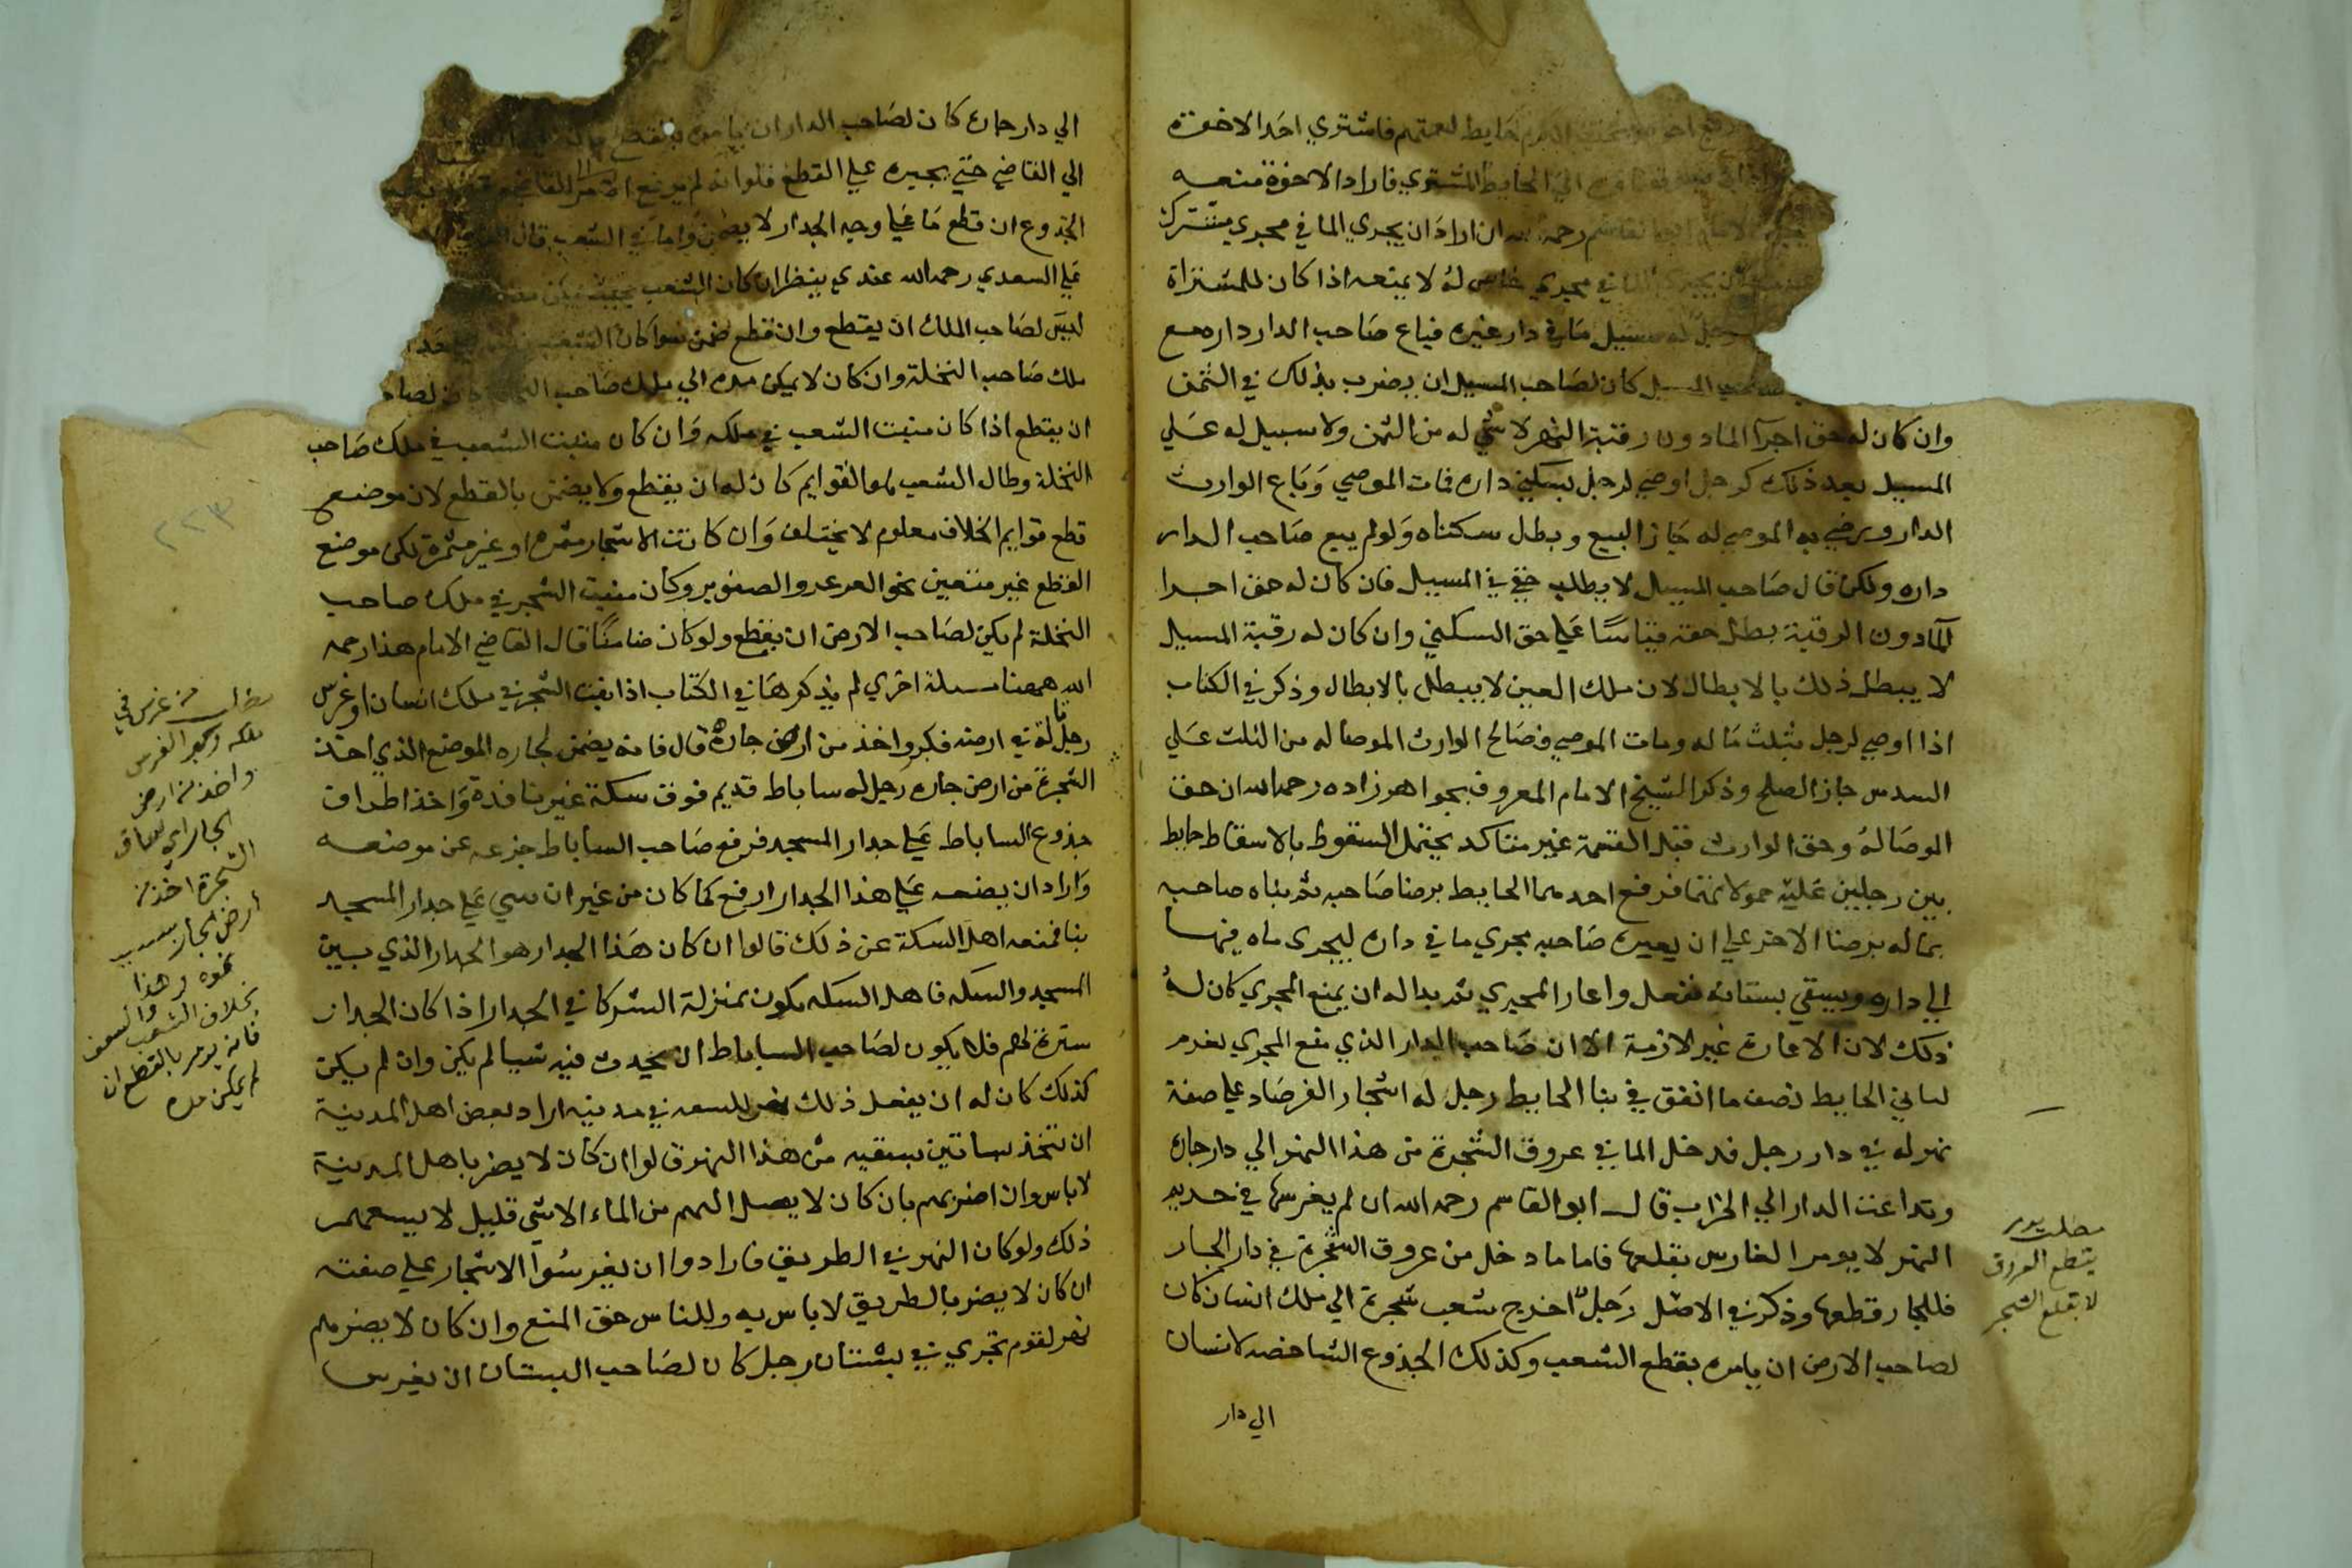 حايط لعمتهم فاشتري احد الاخوة
الي الحايط المشتري فاراد الاخوة منعه
رحمه الله ان اراد ان يجري الما في مجري مشترك
مجري خاص له لا يمنعه اذا كان للمشتراة
مسيل ما في دار غيره فباع صاحب الدار داره مع
المسيل كان لصاحب المسيل ان يضرب بذلك في الثمن
وان كان له حق اجرآ الما دون رقبة النهر لا شي له من الثمن ولا سبيل له علي
المسيل بعد ذلك كرجل اوصي لرجل بسكني داره فمات الموصي وباع الوارث
الدار ورضي به الموصي له جاز البيع وبطل سكناه ولو لم يبع صاحب الدار
داره ولكن قال صاحب المسيل لا يطلب حقي في المسيل فان كان له حق اجرا
المآ دون الرقبة بطل حقه قياسًا علي حق السكني وان كان له رقبة المسيل
لا يبطل ذلك بالابطال لان ملك العين لا يبطل بالابطال وذكر في الكتاب
اذا اوصي لرجل بثلث ماله ومات الموصي فصالح الوارث الموصا له من الثلث علي
السدس جاز الصلح وذكر الشيخ الامام المعروف بجواهر زاده رحمه الله ان حق
الموصا له وحق الوارث قبل القسمة غير متاكد يحتمل السقوط بالاسقاط حايط
بين رجلين عليه حمولاتهما فرفع احدهما الحايط برضا صاحبه ثم بناه صاحبه
بماله برضا الاخر علي ان يعيره صاحبه مجري ما في داره ليجري ماه فيها
الي داره ويسقي بستانه ففعل واعار المجري ثم بدا له ان يمنع المجري كان له
ذلك لان الاعارة غير لازمة الا ان صاحب الدار الذي منع المجري يغرم
لباني الحايط نصف ما انفق في بنا الحايط رجل له اشجار الفرصاد علي صفة
نهر له في دار رجل فدخل الما في عروق الشجرة من هذا النهر الي دار جاره
وتداعت الدار الي الخراب قال ابو القاسم رحمه الله ان لم يغرسها في حديم
النهر لا يومر الغارس بقلعها فاما ما دخل من عروق الشجرة في دار الجار
فللجار قطعها وذكر في الاصل رجل اخرج شعب شجرة الي ملك انسان كان
لصاحب الارض ان يامره بقطع الشعب وكذلك الجذوع الشاخصه لانسان
الي دار
مطلب يومر
بقطع العروق
لا بقلع الشجر
الي دار جاره كان لصاحب الدار ان يامره بقطع
الي القاضي حتي يجبره علي القطع فلو انه لم يرفع الامر الي القاضي
الجذوع ان قطع ما علي وجه الجدار لا يضمن واما في الشعب قال
علي السعدي رحمه الله عندي ينظر ان كان الشعب بحيث يمكن
ليس لصاحب الملك ان يقطع وان قطع ضمن سوا كان الشعب
ملك صاحب النخلة وان كان لا يمكن مده الي ملك صاحب
ان يقطع اذا كان منبت الشعب في ملكه وان كان منبت الشعب في ملك صاحب
النخلة وطال الشعب لها القوايم كان له ان يقطع ولا يضمن بالقطع لان موضع
قطع قوايم الخلاف معلوم لا يختلف وان كانت الاشجار مثمرة او غير مثمرة لكن موضع
القطع غير متعين نحو العرعر والصنوبر وكان منبت الشجر في ملك صاحب
النخلة لم يكن لصاحب الارض ان يقطع ولو كان ضامنًا قال القاضي الامام هذا رحمه
الله ههنا مسلة اخري لم يذكرها في الكتاب اذا نبت الشجر في ملك انسان او غرس
رجل تالة في ارضه فكبر واخذ من ارض جاره قال فانه يضمن لجاره الموضع الذي اخذ
الشجرة من ارض جاره رجل له ساباط قديم فوق سكة غير نافذة واخذ اطراف
جذوع الساباط علي جدار المسجد فرفع صاحب الساباط جزعه عن موضعه
واراد ان يضعه علي هذا الجدار ارفع كما كان من غير ان يبني علي جدار المسجد
بنا فمنعه اهل السكة عن ذلك قالوا ان كان هذا الجدار هو الجدار الذي بين
المسجد والسكه فاهل السكه يكون بمنزلة الشركا في الجدار اذا كان الجدار
سترة لهم فلا يكون لصاحب الساباط ان يحدث فيه شيا لم يكن وان لم يكن
كذلك كان له ان يفعل ذلك نهر في مدينه اراد بعض اهل المدينة
ان تتخذ بساتين يسقيه من هذا النهر قالوا ان كان لا يضر باهل المدينة
لا باس وان اضر بهم بان كان لا يصل اليهم من الماء الا شي قليل لا يسعهم
ذلك ولو كان النهر في الطريق فارادوا ان يغرسوا الاشجار علي صفته
ان كان لا يضر بالطريق لا باس به وللناس حق المنع وان كان لا يضر بهم
نهر لقوم تجري في بستان رجل كان لصاحب البستان ان يغرس
غرس في
ملكه وكبر الغرس
واخذ من ارض
الجار اي ساق
الشجرة اخذ من
ارض الجار بسبب
نموه وهذا
بخلاف الشعب والسعف
فانه يومر بالقطع ان
لم يكن مده
٢٢٣